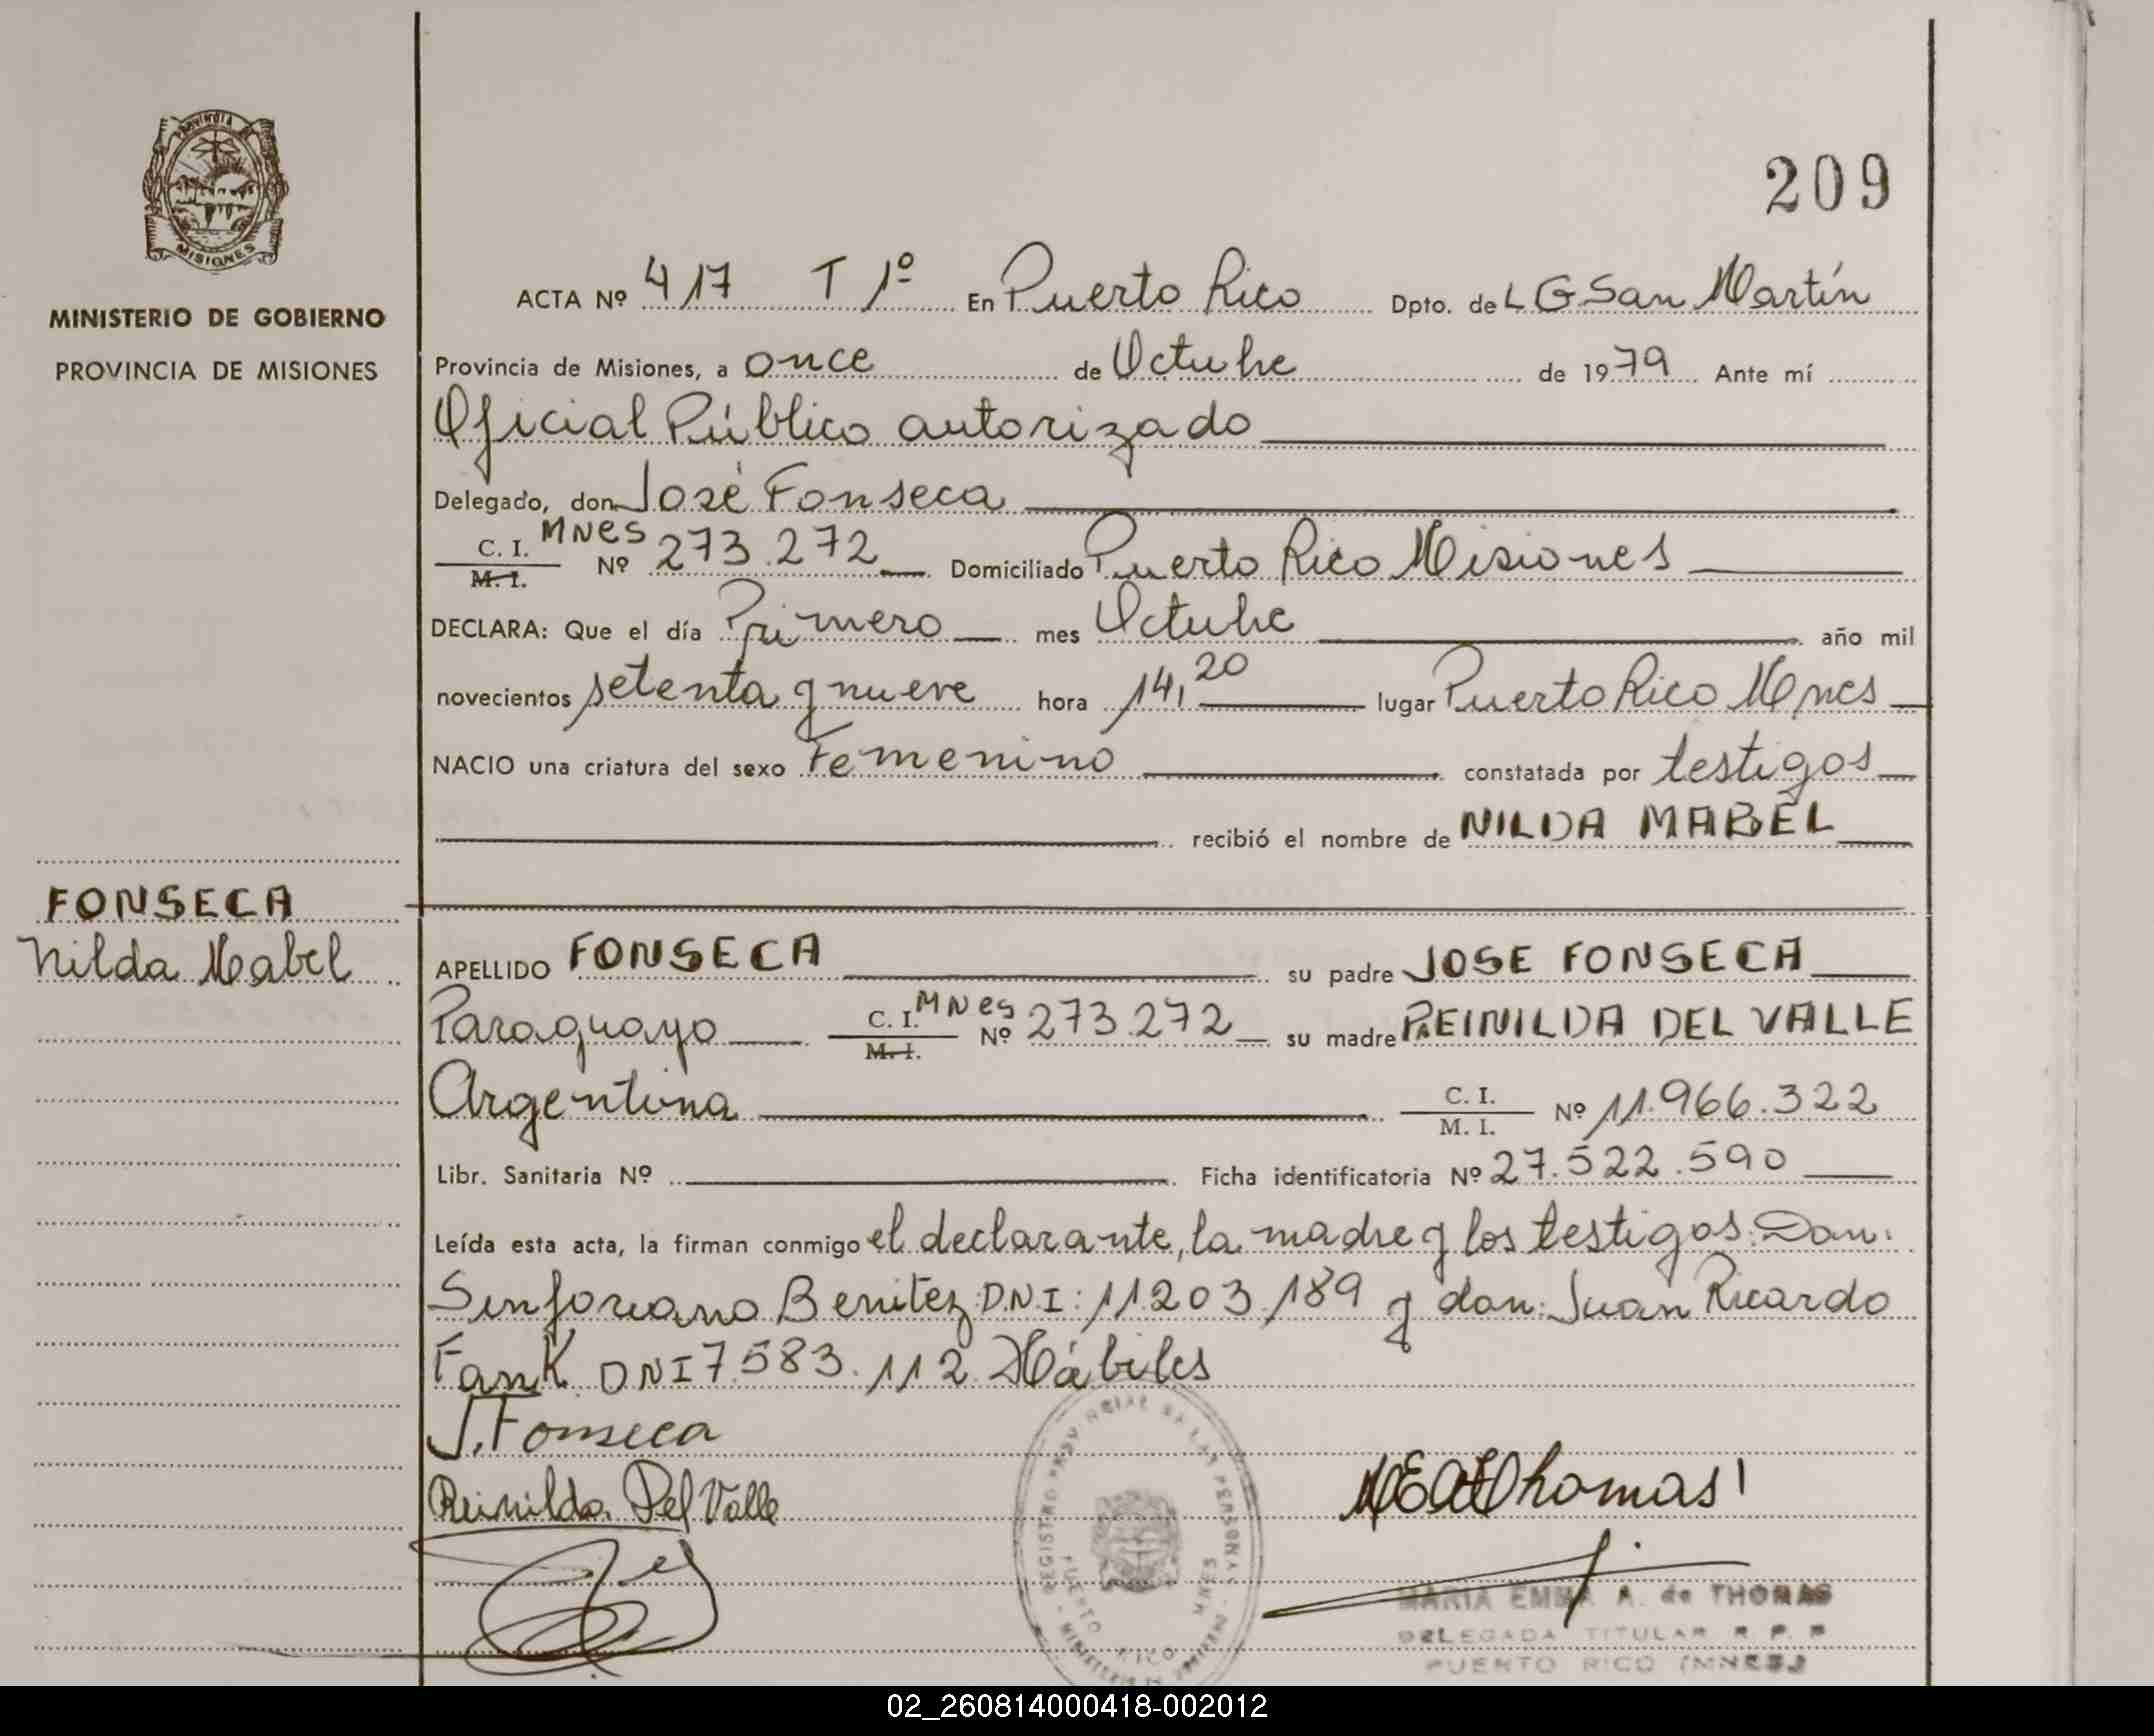 209
PROVINCIA DE
MISIONES
MINISTERIO DE GOBIERNO
PROVINCIA DE MISIONES
ACTA Nº 417 T 1º En Puerto Rico Dpto. de L G San Martín
Provincia de Misiones, a once de Octubre de 1979 Ante mí
Oficial Público autorizado
Delegado, don José Fonseca
C. I. M. I. MNES Nº 273.272 Domiciliado Puerto Rico Misiones
DECLARA: Que el día Primero mes Octubre año mil
novecientos setenta y nueve hora 14,20 lugar Puerto Rico Mnes
NACIO una criatura del sexo Femenino constatada por testigos
recibió el nombre de NILDA MABEL
FONSECA
Nilda Mabel
APELLIDO FONSECA su padre JOSE FONSECA
Paraguayo C. I. M. I. MNes Nº 273.272 su madre REINILDA DEL VALLE
Argentina C. I. M. I. Nº 11.966.322
Libr. Sanitaria Nº Ficha identificatoria Nº 27.522.590
Leída esta acta, la firman conmigo el declarante, la madre y los testigos: Don:
Sinforiano Benitez D.N.I: 11.203.189 y don: Juan Ricardo
Fank DNI 7.583.112 Hábiles
J. Fonseca
Reinilda Del Valle
REGISTRO PROVINCIAL DE LAS PERSONAS
PUERTO RICO MNES
MINISTERIO DE GOBIERNO
MARIA EMMA A. de THOMAS
DELEGADA TITULAR R. P. P
PUERTO RICO (MNES.)
02_260814000418-002012